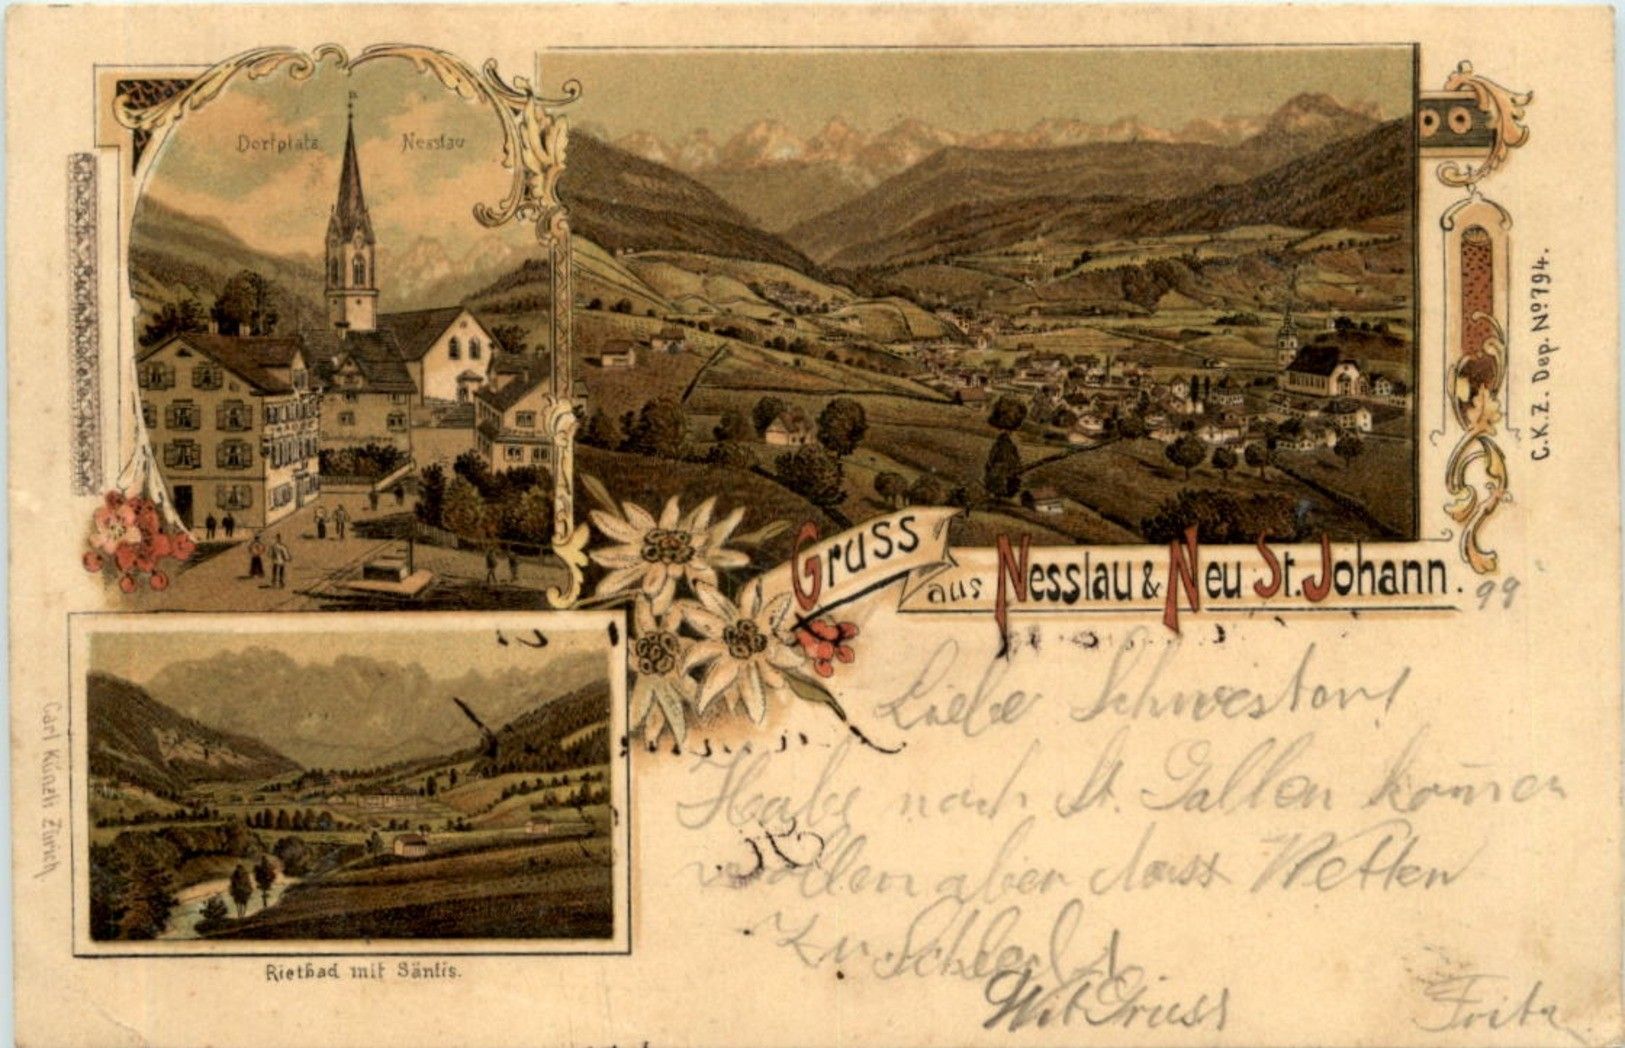 Dorfplatz Nesslau
Gruss
aus Nesslau & Neu St. Johann.
99
C.K.Z. Dep. No 794.
Carl Künzli Zürich.
Rietbad mit Säntis.
Liebe Schwestern!
Habe nach St. Gallen komen
wollen aber dass Wetter
zu Schlecht
Mit Gruss Fritz